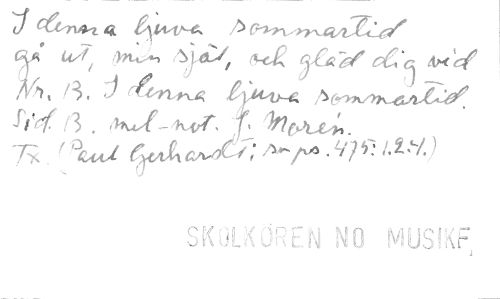 I denna ljuva sommartid
gå ut, min själ, och gläd dig vid
Nr. B. I denna ljuva sommartid.
Sid. B. mel-not. J. Morén.
Tx. (Paul Gerhardt; sv ps. 475:1.2.4.)
SKOLKÖREN NO MUSIKF.